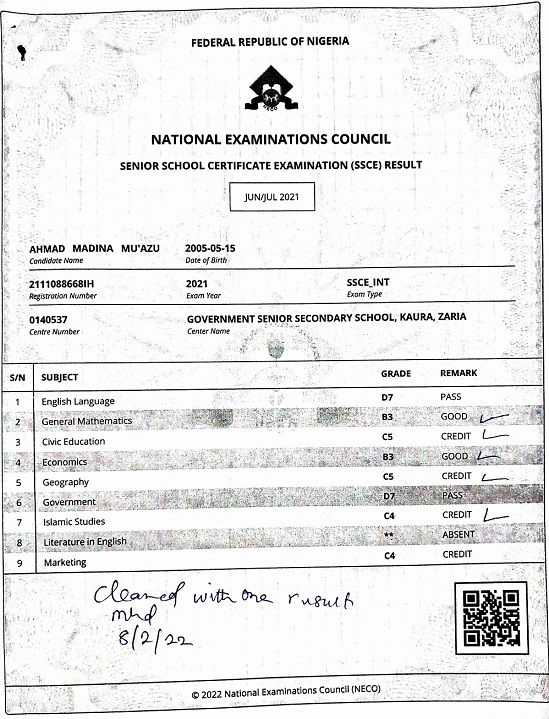 FEDERAL REPUBLIC OF NIGERIA
NECO
NATIONAL EXAMINATIONS COUNCIL
SENIOR SCHOOL CERTIFICATE EXAMINATION (SSCE) RESULT
JUN/JUL 2021
AHMAD MADINA MU'AZU 2005-05-15
Candidate Name Date of Birth
2111088668IH 2021 SSCE_INT
Registration Number Exam Year Exam Type
0140537 GOVERNMENT SENIOR SECONDARY SCHOOL, KAURA, ZARIA
Centre Number Center Name
S/N SUBJECT GRADE REMARK
1 English Language D7 PASS
2 General Mathematics B3 GOOD
3 Civic Education C5 CREDIT
4 Economics B3 GOOD
5 Geography C5 CREDIT
6 Government D7 PASS
7 Islamic Studies C4 CREDIT
8 Literature in English ** ABSENT
9 Marketing C4 CREDIT
with one
8/2/22
© 2022 National Examinations Council (NECO)